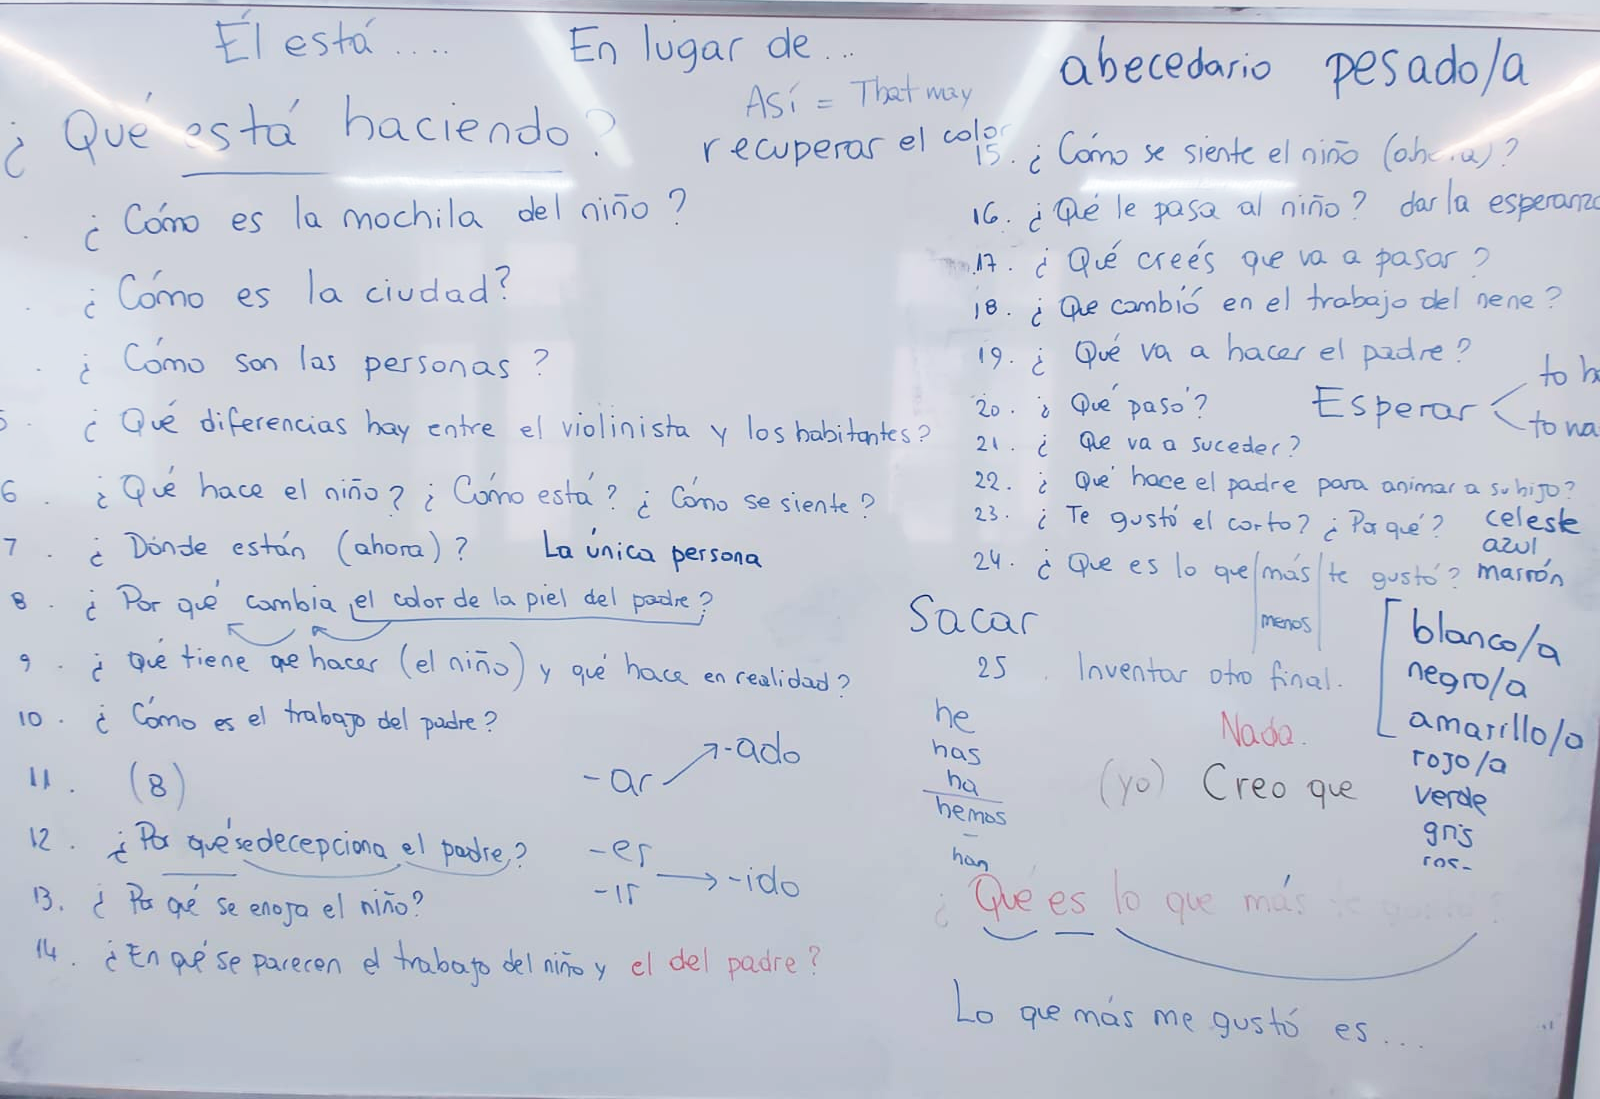 Él está ....
En lugar de ...
Así = That may
recuperar el color
abecedario pesado/a
¿Qué está haciendo?
¿Cómo es la mochila del niño?
¿Cómo es la ciudad?
¿Cómo son las personas?
5. ¿Qué diferencias hay entre el violinista y los habitantes?
6. ¿Qué hace el niño? ¿Cómo está? ¿Cómo se siente?
7. ¿Dónde están (ahora)? La única persona
8. ¿Por qué cambia el color de la piel del padre?
9. ¿Qué tiene que hacer (el niño) y qué hace en realidad?
10. ¿Cómo es el trabajo del padre?
11. (8)
12. ¿Por qué se decepciona el padre?
13. ¿Por qué se enoja el niño?
14. ¿En qué se parecen el trabajo del niño y el del padre?
-ar -ado
-er
-ir -ido
15. ¿Cómo se siente el niño (ahora)?
16. ¿Qué le pasa al niño? dar la esperanz
17. ¿Qué creés que va a pasar?
18. ¿Que cambió en el trabajo del nene?
19. ¿Qué va a hacer el padre?
20. ¿Qué pasó?
Esperar
to h
to wa
21. ¿Que va a suceder?
22. ¿Qué hace el padre para animar a su hijo?
23. ¿Te gustó el corto? ¿Por qué?
24. ¿Que es lo que más te gustó?
menos
25. Inventar otro final.
Sacar
he
has
ha
hemos
-
han
Nada.
(yo) Creo que
celeste
azul
marrón
blanco/a
negro/a
amarillo/a
rojo/a
verde
gris
¿Qué es lo que más te gustó?
Lo que más me gustó es ...